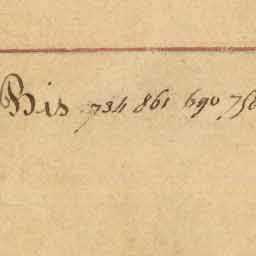 Bis 734 861 690 756